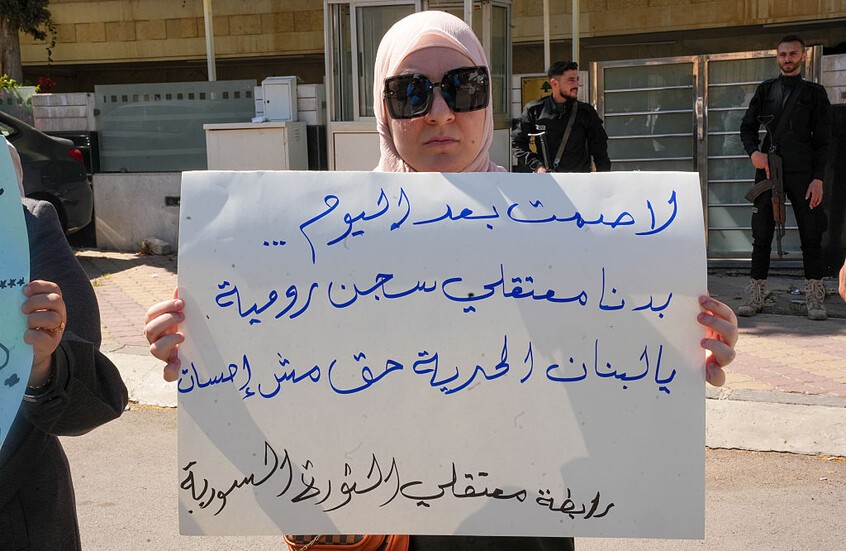 لا صمت بعد اليوم ...
بدنا معتقلي سجن رومية
يا لبنان الحرية حق مش إحسان
رابطة معتقلي الثورة السورية